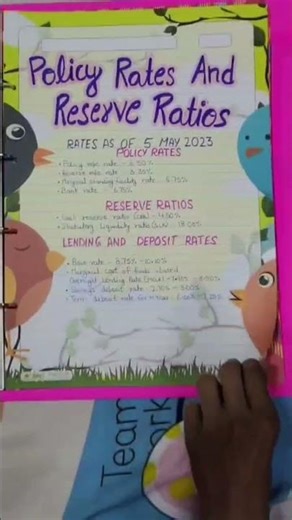 Policy Rates And
Reserve Ratios
RATES AS OF 5 MAY 2023
POLICY RATES
• Policy repo rate - 6.50%
• Reverse repo rate - 3.35%
• Marginal standing facility rate - 6.75%
• Bank rate - 6.75%
RESERVE RATIOS
• Cash reserve ratio (CRR) - 4.50%
• Statutory liquidity ratio (SLR) - 18.00%
LENDING AND DEPOSIT RATES
• Base rate - 8.75% - 10.10%
• Marginal cost of funds based
Overnight lending rate (MCLR)
• Savings deposit rate - 2.70% - 3.00%
• Term deposit rate for > 1 Year -
Team
ork